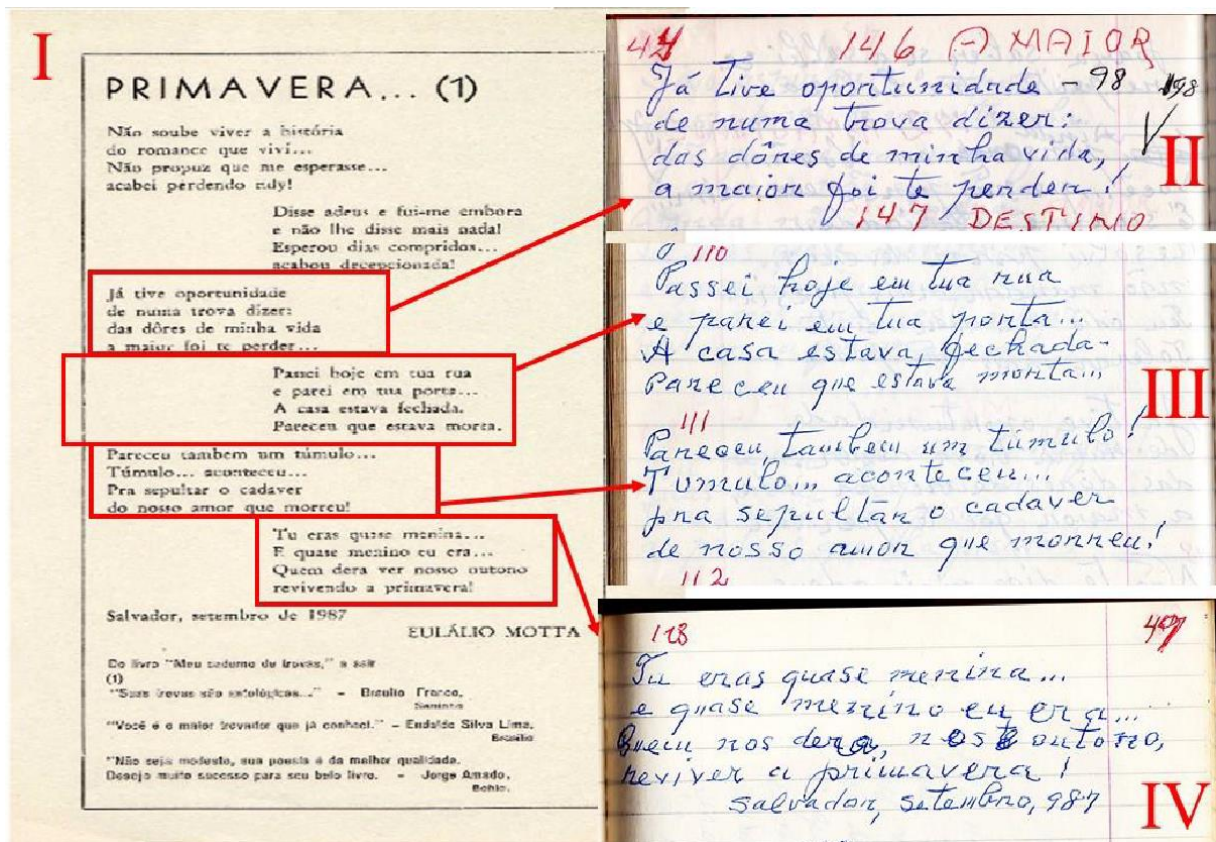 I
PRIMAVERA... (1)
Não soube viver a história
do romance que viví...
Não propuz que me esperasse...
acabei perdendo ndy!
Disse adeus e fui-me embora
e não lhe disse mais nada!
Esperou dias compridos...
acabou decepcionada!
Já tive oportunidade
de numa trova dizer:
das dôres de minha vida
a maior foi te perder...
Passei hoje em tua rua
e parei em tua porta...
A casa estava fechada.
Pareceu que estava morta.
Pareceu tambem um túmulo...
Túmulo... aconteceu...
Pra sepultar o cadaver
do nosso amor que morreu!
Tu eras quase menina...
E quase menino eu era...
Quem dera ver nosso outono
revivendo a primavera!
Salvador, setembro de 1987
EULÁLIO MOTTA
Do livro "Meu caderno de trovas," a sair
(1)
"Suas trovas são antológicas..." – Braulio Franco,
"Você é o maior trovador que já conheci." – Eudaldo Silva Lima,
Brasilia
"Não seja modesto, sua poesia é da melhor qualidade.
Desejo muito sucesso para seu belo livro. – Jorge Amado,
Bahia.
146 A MAIOR
Já tive oportunidade – 98 198
de numa trova dizer:
das dôres de minha vida,
a maior foi te perder!
147 DESTINO
II
110
Passei hoje em tua rua
e parei em tua porta...
A casa estava fechada-
Pareceu que estava morta...
111
Pareceu, tambem um túmulo!
Tumulo... aconteceu...
pra sepultar o cadaver
de nosso amor que morreu!
112
III
128
Tu eras quase menina...
e quase menino eu era...
Quem nos dera, neste outono,
reviver a primavera!
Salvador, setembro, 987
IV